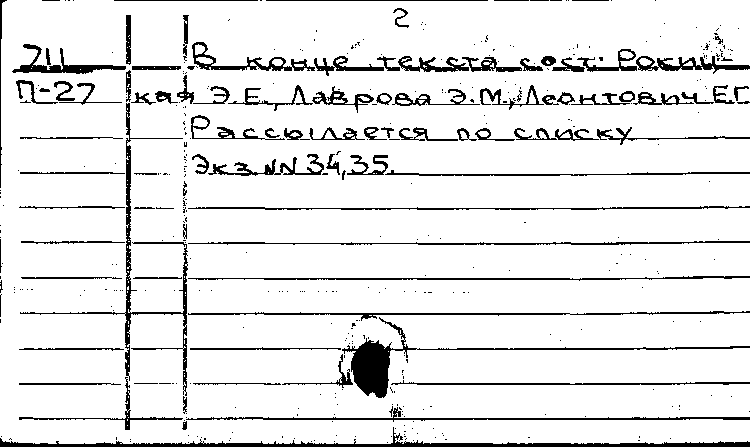 2
711 В конце текста сост: Рокиц-
П-27 кая Э.Е., Лаврова Э.М., Леонтович Е.Г.
Рассылается по списку
Экз. NN 34, 35.